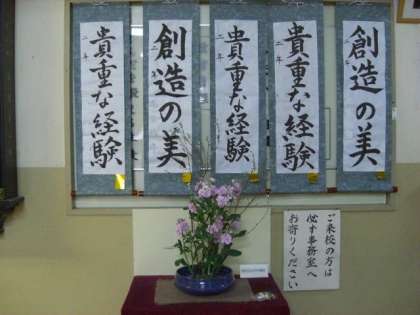 創造の美
二年
貴重な経験
二年
貴重な経験
二年
創造の美
二年
貴重な経験
二年
ご来校の方は
必ず事務室へ
お寄りください